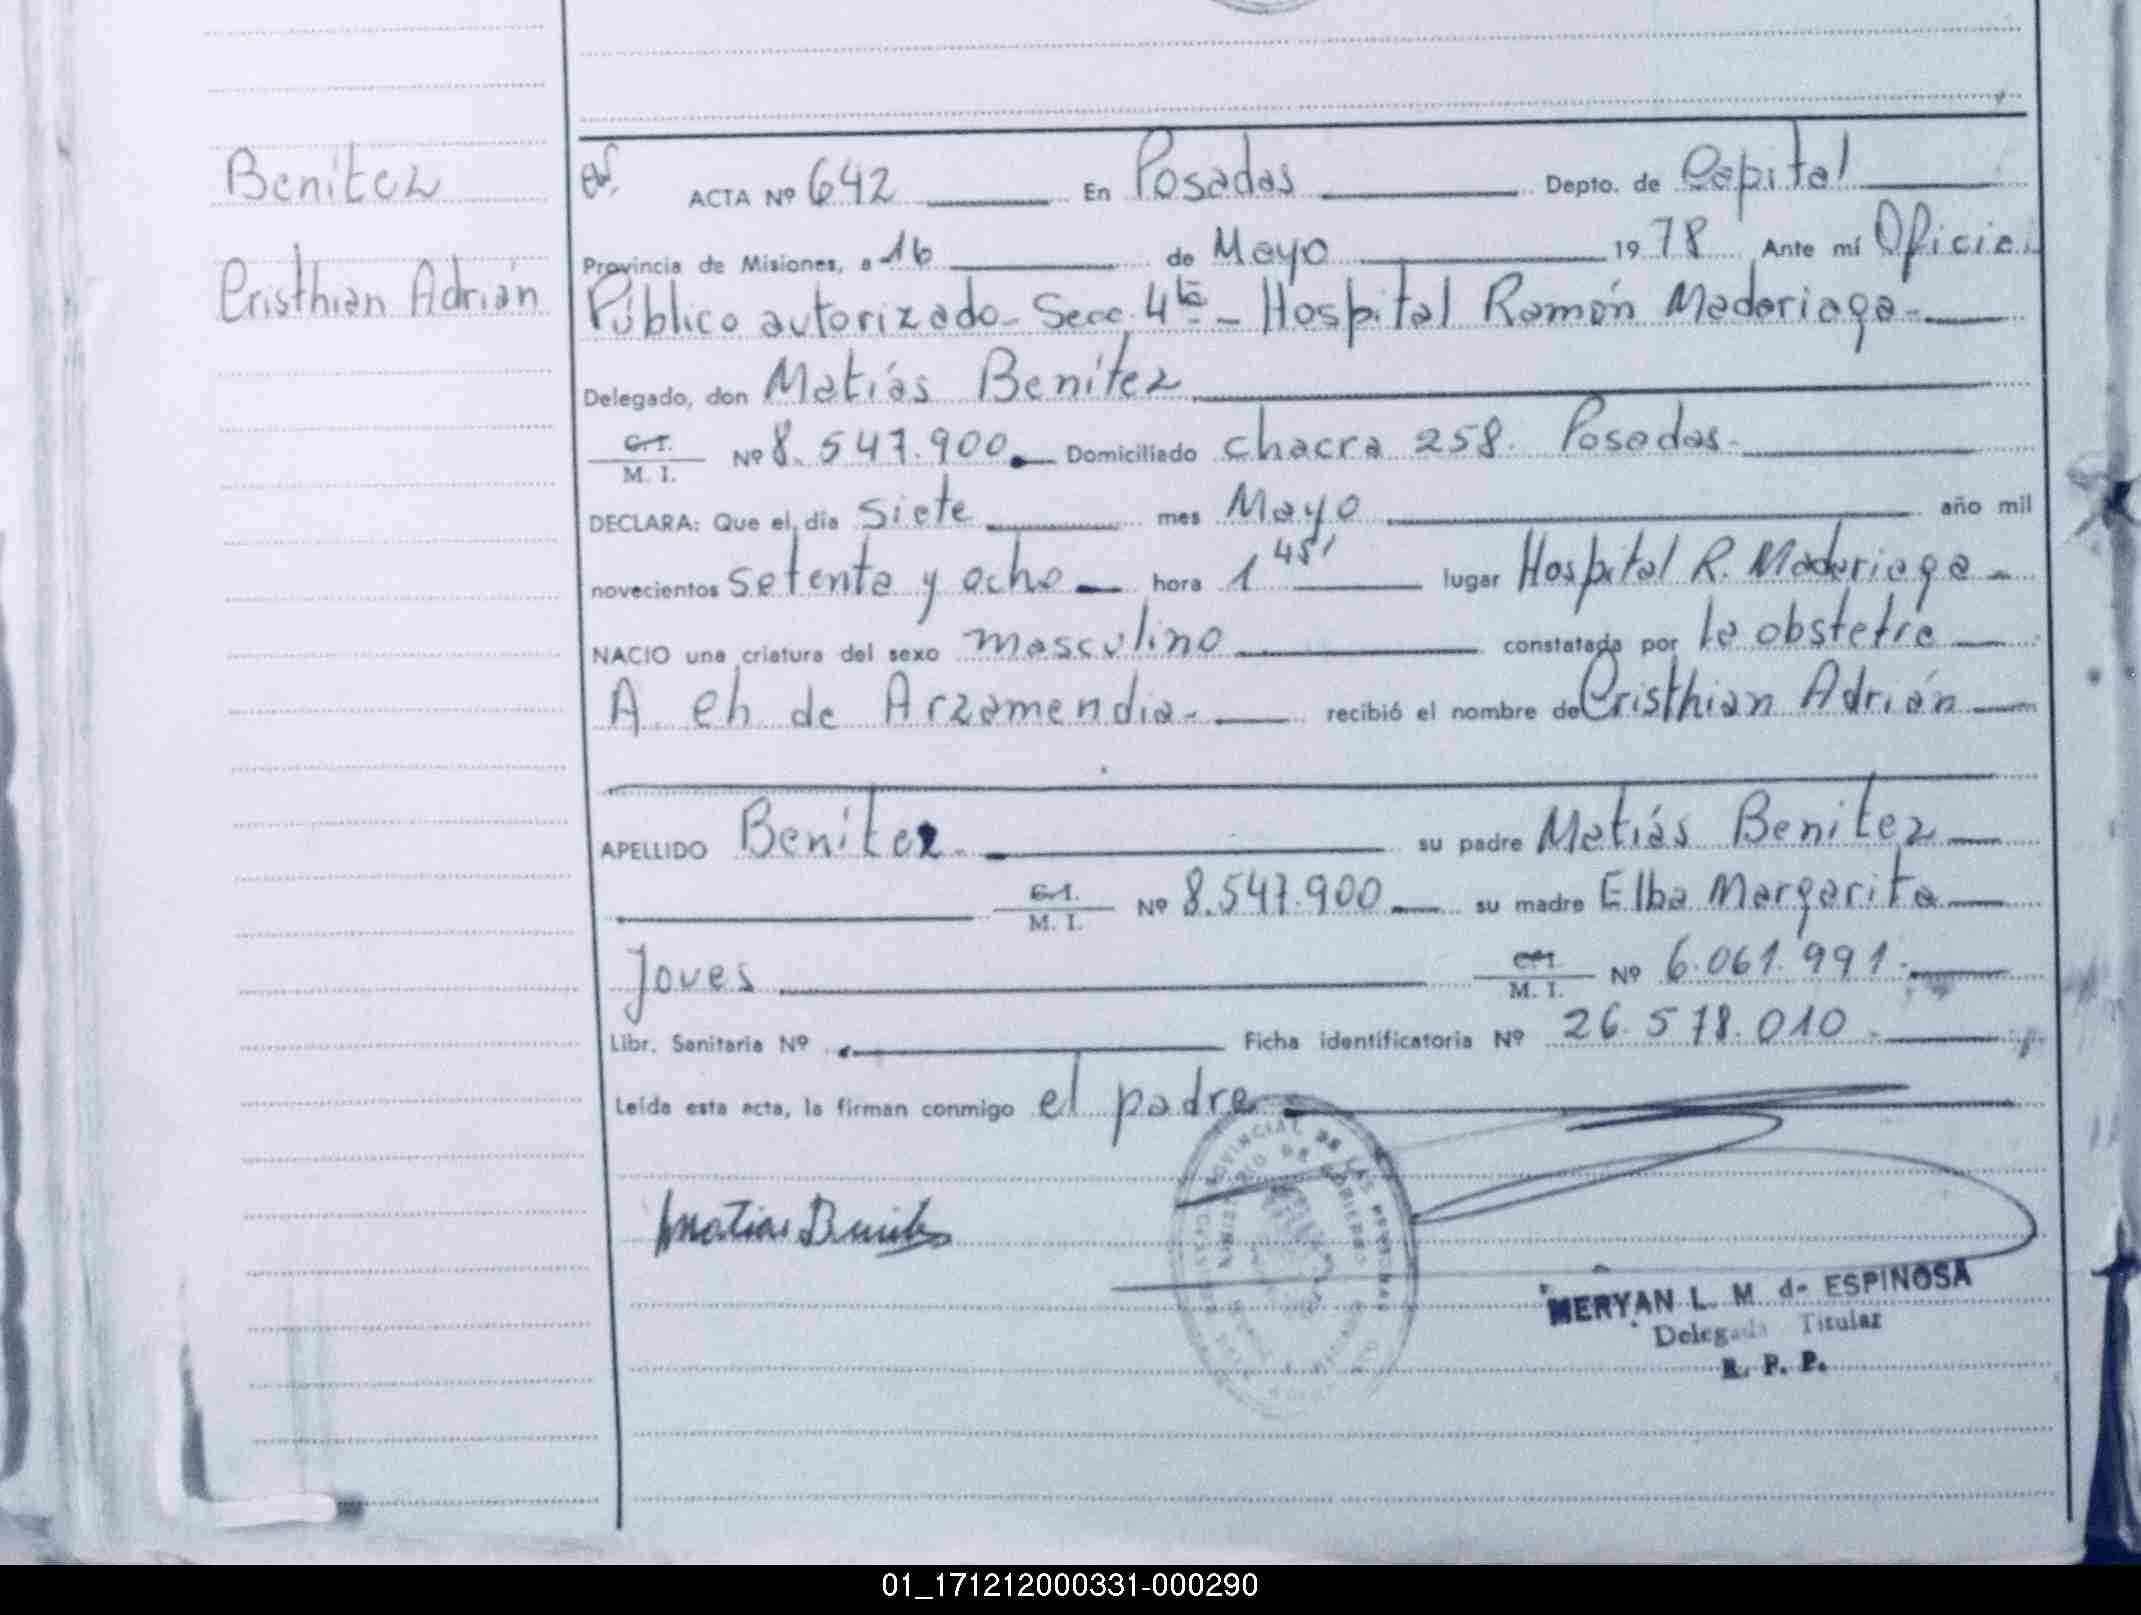 Benitez
Cristhian Adrián
ACTA Nº 642 En Posadas Depto. de Capital
Provincia de Misiones, a 16 de Mayo 1978 Ante mí Oficial
Público autorizado - Secc. 4ta - Hospital Ramón Madariaga -
Delegado, don Matías Benítez
C.I. M. I. Nº 8.547.900. Domiciliado chacra 258. Posadas-
DECLARA: Que el día siete mes Mayo año mil
novecientos setenta y ocho hora 1 45' lugar Hospital R. Madariaga -
NACIO una criatura del sexo masculino constatada por la obstetra
A. de Arzamendia- recibió el nombre de Cristhian Adrián
APELLIDO Benítez su padre Matías Benítez
C.I. M. I. Nº 8.547.900 su madre Elba Margarita
Joves C.I. M. I. Nº 6.061.991.
Libr. Sanitaria Nº Ficha identificatoria Nº 26.578.010
Leída esta acta, la firman conmigo el padre
PROVINCIAL DE LAS PERSONAS
MINISTERIO DE GOBIERNO
Matias Benitez
MERYAN L. M. de ESPINOSA
Delegada Titular
R. P. P.
01_171212000331-000290